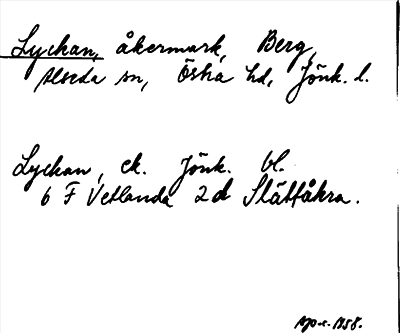 Lyckan, åkermark, Berg,
Alseda sn, Östra hd, Jönk. l.
Lyckan, ek. Jönk. bl.
6 F Vetlanda 2d Slättåkra.
1958.